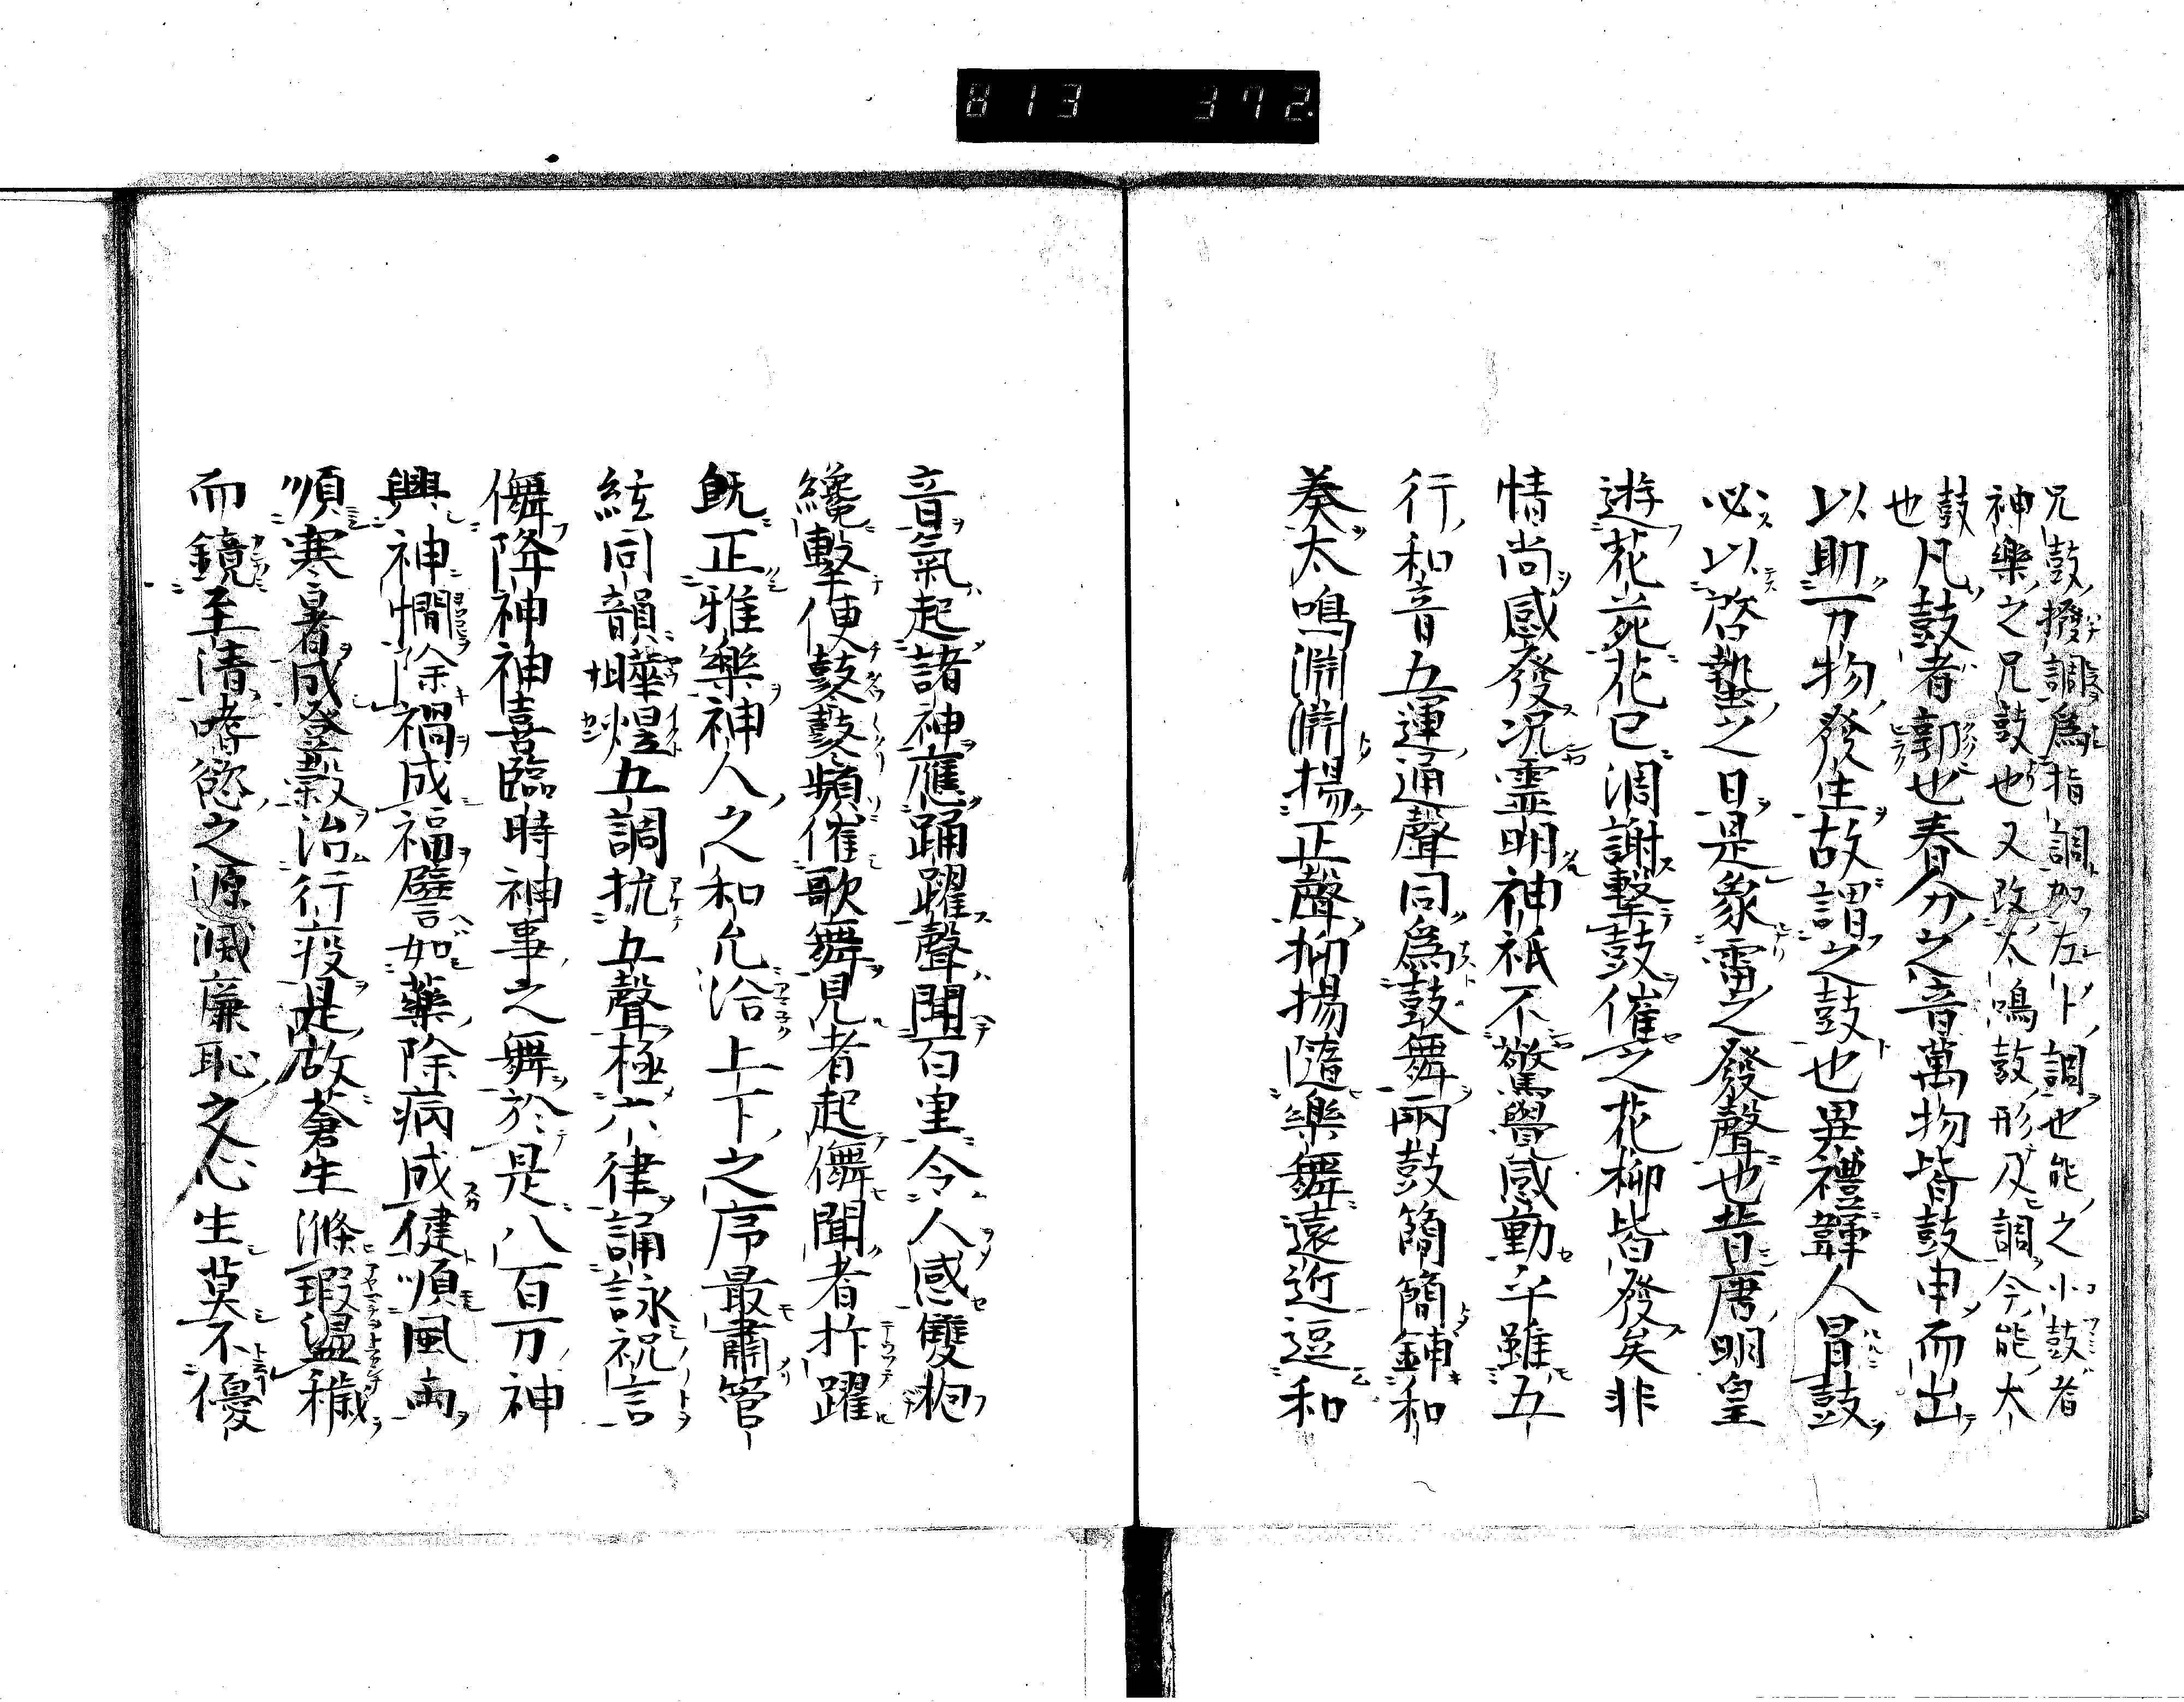 813 372
兄鼓撥調爲指調加左卜調也能之小鼓者
神樂之兄鼓也又改太鳴鼓形及調今能太
鼓也
凡鼓者郭也春分之音萬物皆鼓申而出
以助万物發生故謂之鼓也異禮韗人冒鼓
必以啓蟄之日是象雷之發聲也昔唐明皇
遊花苑花已凋謝擊鼓催之花柳皆發矣非
情尚感發况霊明神祇不驚覺感動乎雖五
行和音五運通聲同爲鼓舞兩鼓簡簡鋪和
奏太鳴淵淵揚正聲抑揚隨樂舞遠近逗和
音氣起諸神應踊躍聲聞百里令人感雙枹
纔擊便鼓鼕鼕頻催歌舞見者起儛聞者抃躍
既正雅樂神人之和允洽上下之序最肅管
絃同韻曄煌五調抗五聲極六律誦詠祝言
儛降神神喜臨時神事之舞於是八百万神
興神憪除禍成福譬如藥除病成健順風雨
順寒暑成登穀治行疫是故蒼生滌瑕盪穢
而鏡至清嗜慾之源滅廉恥之心生莫不優